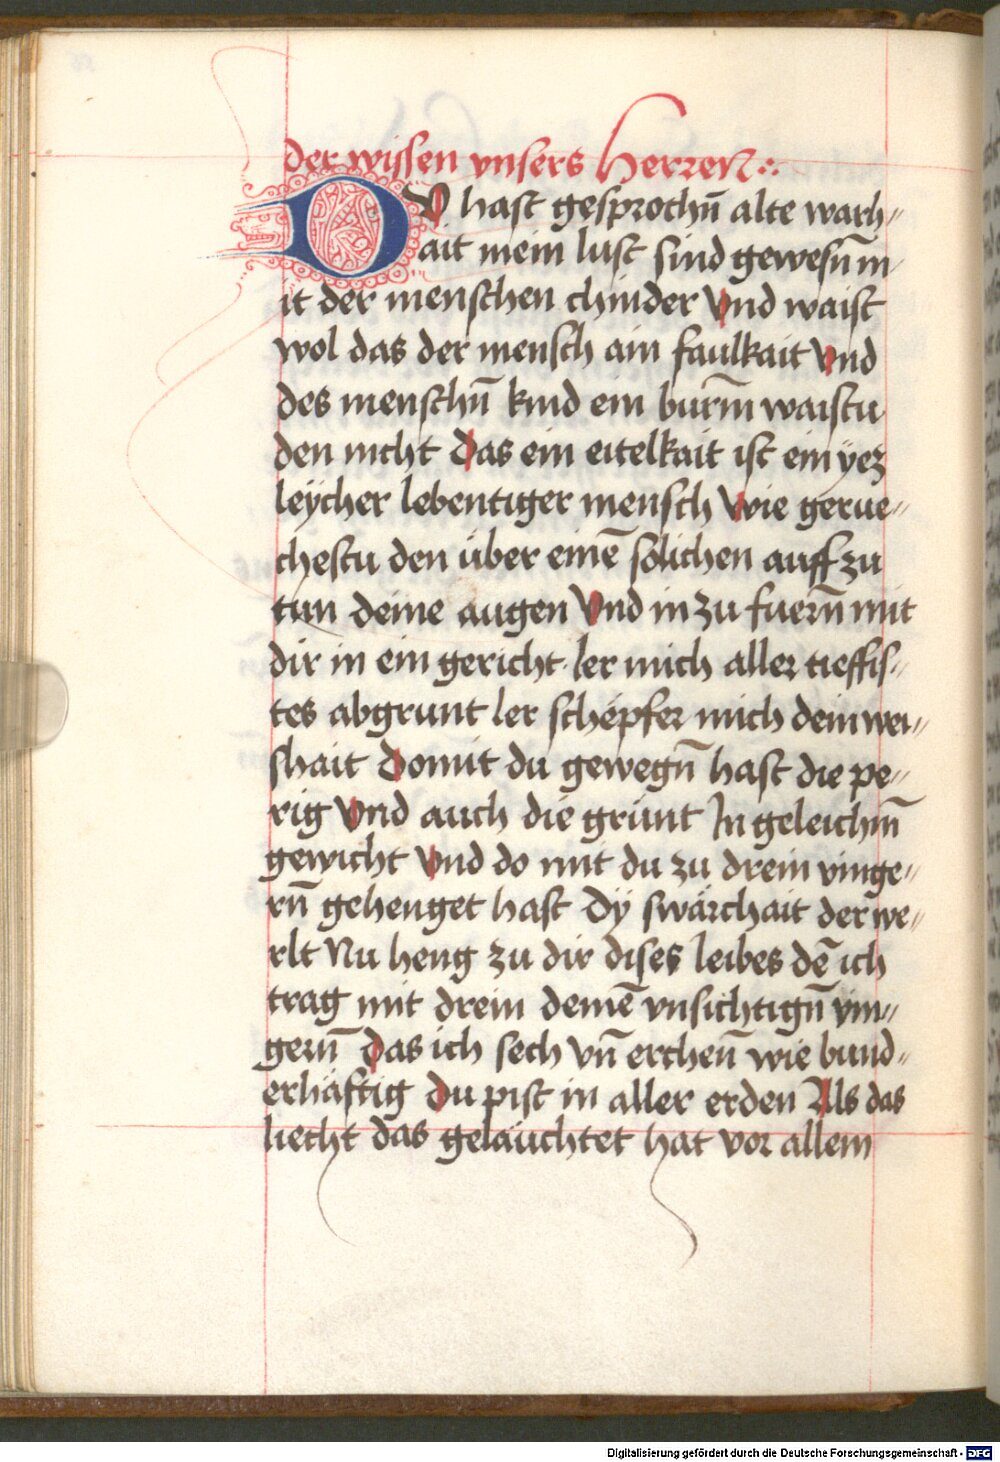 der wissen vnsers Herren :·
DV hast gesprochn̄ alte warh〃
ait mein lust sind gewesn̄ m〃
it der menschen chinder Vnd waist
wol das der mensch ain faulkait Vnd
des menschn̄ kind ein burm̄ waistu
den nicht Das ein eitelkait ist ein yez
leÿcher lebentiger mensch Wie gerue〃
chestu den über einē solichen auff zu
tun deine augen Vnd in zu fuern̄ mit
dir in ein gericht · ler mich aller tieffis〃
tes abgrunt ler schepfer mich dein wei〃
shait Domit du gewegn̄ hast die pe〃
rig Vnd auch die grünt In geleichm̄
gewicht Vnd do mit du zu drein vinge〃
rn̄ gehenget hast Dÿ swärchait der we〃
rlt Nu heng zu dir dises leibes dē ich
trag mit drein deinē vnsichtign̄ vin〃
gern̄ Das ich sech vn̄ erchen̄ wie bund〃
erhäftig Du pist in aller erden Als das
liecht das geläuchtet hat vor allem
Digitalisierung gefördert durch die Deutsche Forschungsgemeinschaft - DFG